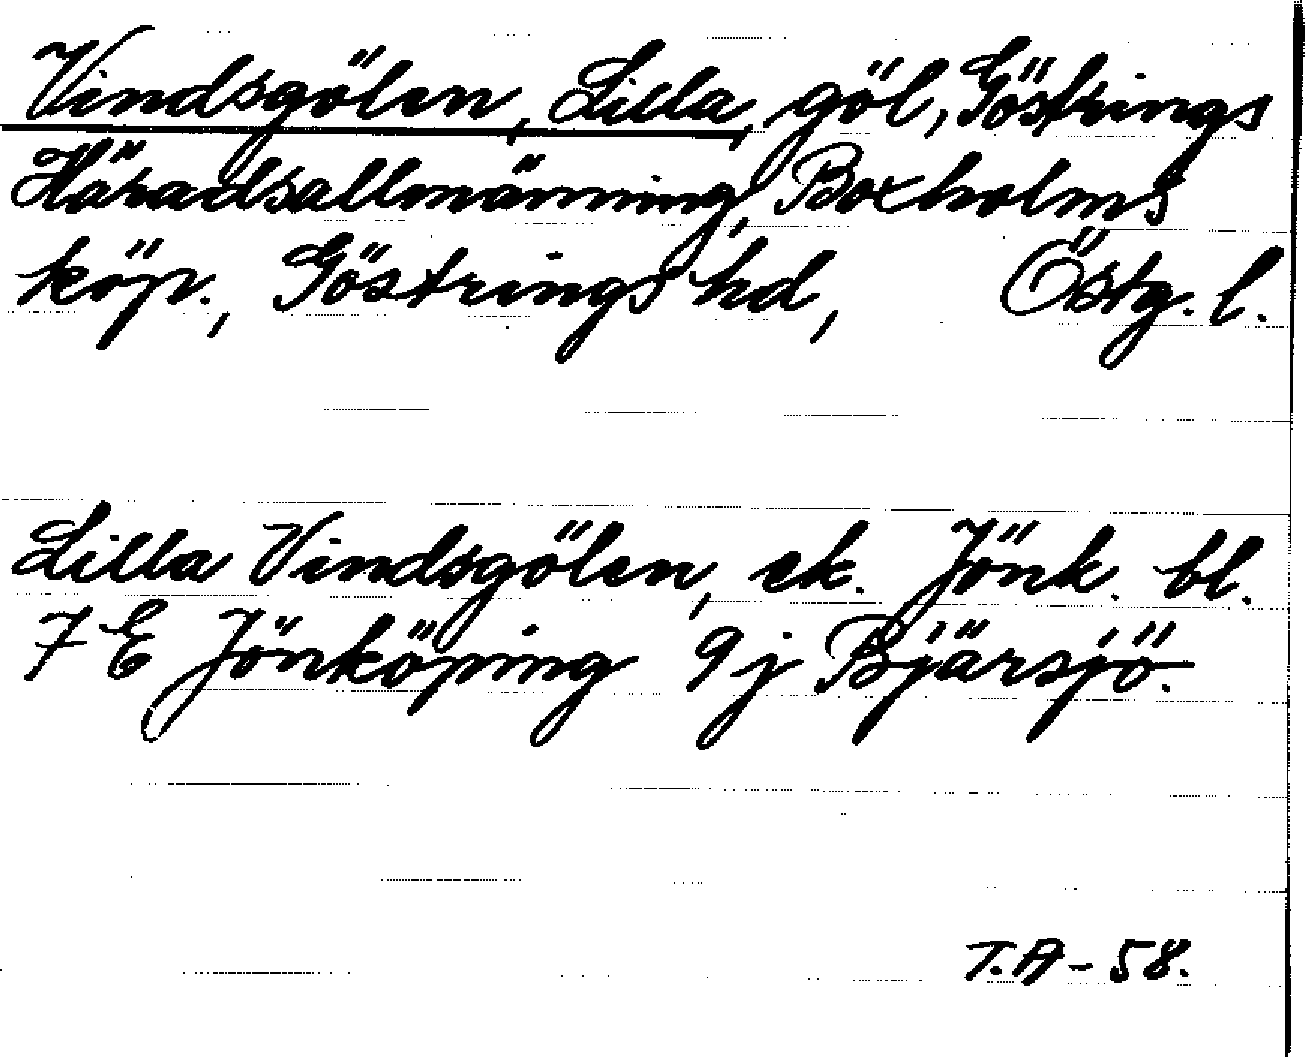 Vindsgölen, Lilla, göl, Göstrings
Häradsallmänning, Boxholms
köp., Göstrings hd, Östg. l.
Lilla Vindsgölen, ek. Jönk. bl.
7 E Jönköping 9j Bjärsjö.
T.A-58.